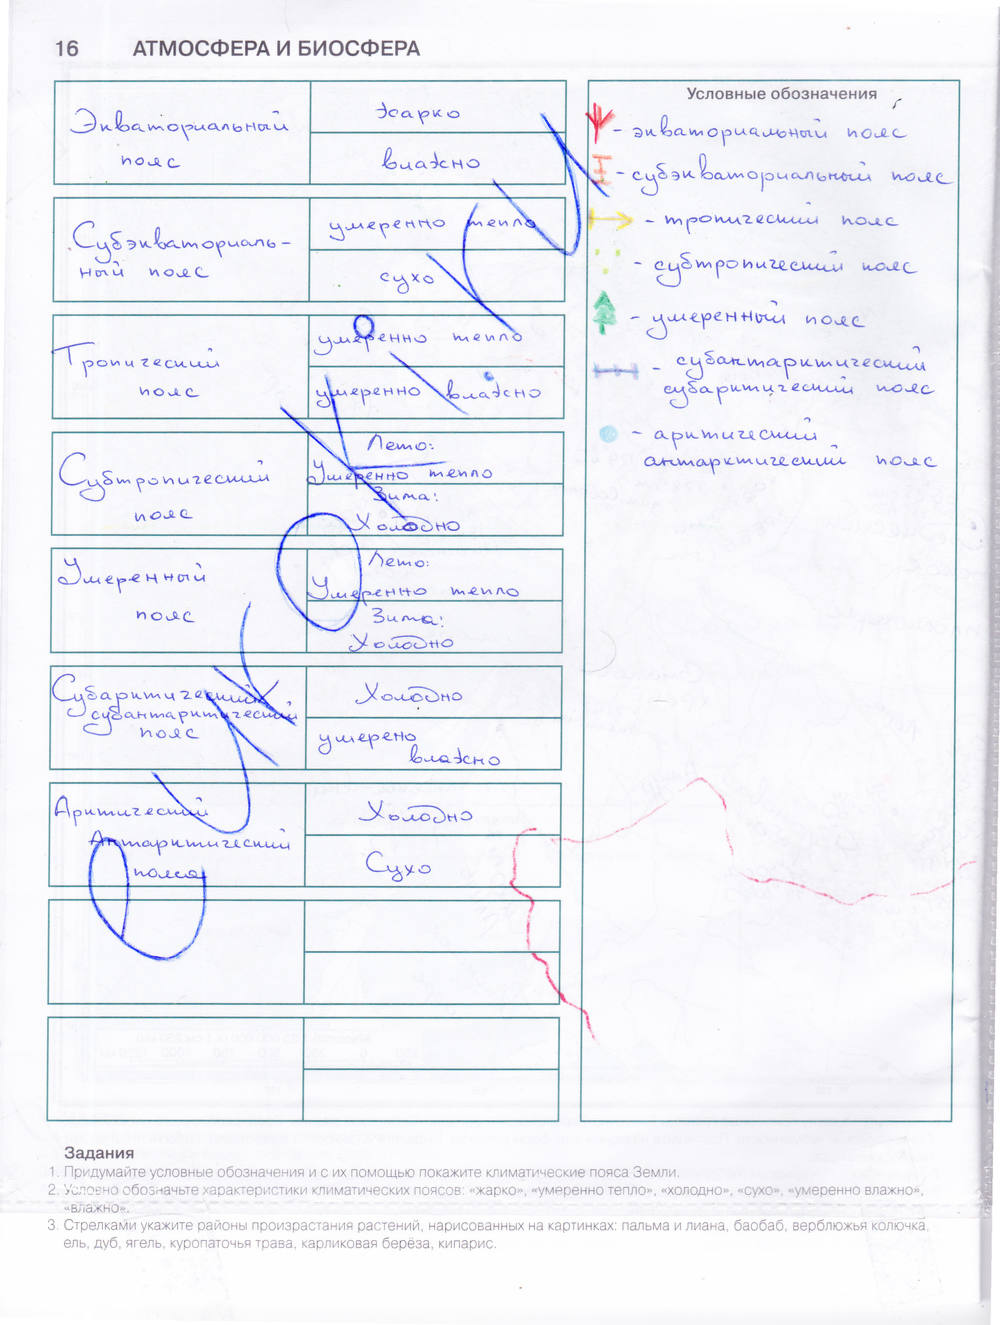 16 АТМОСФЕРА И БИОСФЕРА
Экваториальный
пояс
жарко
влажно
Субэкваториаль-
ный пояс
умеренно тепло
сухо
Тропический
пояс
умеренно тепло
умеренно влажно
Субтропический
пояс
Лето:
Умеренно тепло
Зима:
Холодно
Умеренный
пояс
Лето:
Умеренно тепло
Зима:
Холодно
Субарктический
субантарктический
пояс
Холодно
умерено
влажно
Арктический
Антарктический
пояса
Холодно
Сухо
Условные обозначения
- экваториальный пояс
- субэкваториальный пояс
- тропический пояс
- субтропический пояс
- умеренный пояс
- субантарктический
субарктический пояс
- арктический
антарктический пояс
Задания
1. Придумайте условные обозначения и с их помощью покажите климатические пояса Земли.
2. Условно обозначьте характеристики климатических поясов: «жарко», «умеренно тепло», «холодно», «сухо», «умеренно влажно»,
«влажно».
3. Стрелками укажите районы произрастания растений, нарисованных на картинках: пальма и лиана, баобаб, верблюжья колючка,
ель, дуб, ягель, куропаточья трава, карликовая берёза, кипарис.